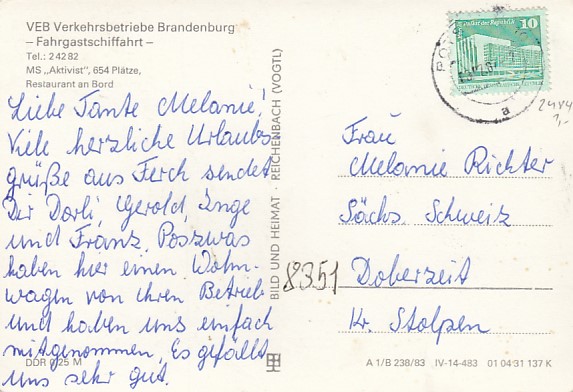 VEB Verkehrsbetriebe Brandenburg
– Fahrgastschiffahrt –
Tel.: 2 42 82
MS „Aktivist", 654 Plätze,
Restaurant an Bord
Liebe Tante Melanie!
Viele herzliche Urlaubs-
grüße aus Ferch sendet
Dir Dorli, Gerold, Inge
und Franz. Poszwas
haben hier einen Wohn-
wagen von ihren Betrieb
und haben uns einfach
mitgenommen. Es gefällt
uns sehr gut.
DDR 0,25 M
BILD UND HEIMAT · REICHENBACH (VOGTL)
Palast der Republik 10
a
2484
1,-
Frau
Melanie Richter
Sächs. Schweiz
8351 Doberzeit
Kr. Stolpen
A 1/B 238/83 IV-14-483 01 04 31 137 K